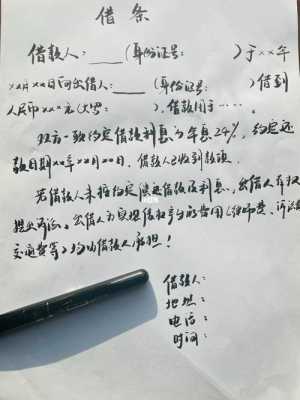 借条
借款人：____(身份证号：          )于××年
××月××日向出借人：____ (身份证号：          )借到
人民币×××元(大写：          )，借款用于……。
双方一致约定借款利息为年息24%，约定还
款日期××年××月××日，借款人已收到款项。
若借款人未按约定偿还借款及利息，出借人有权
提出诉讼，出借人为实现债权产生的费用(律师费、诉讼费、
交通费等)均由借款人承担！
借款人：
地址：
电话：
时间：